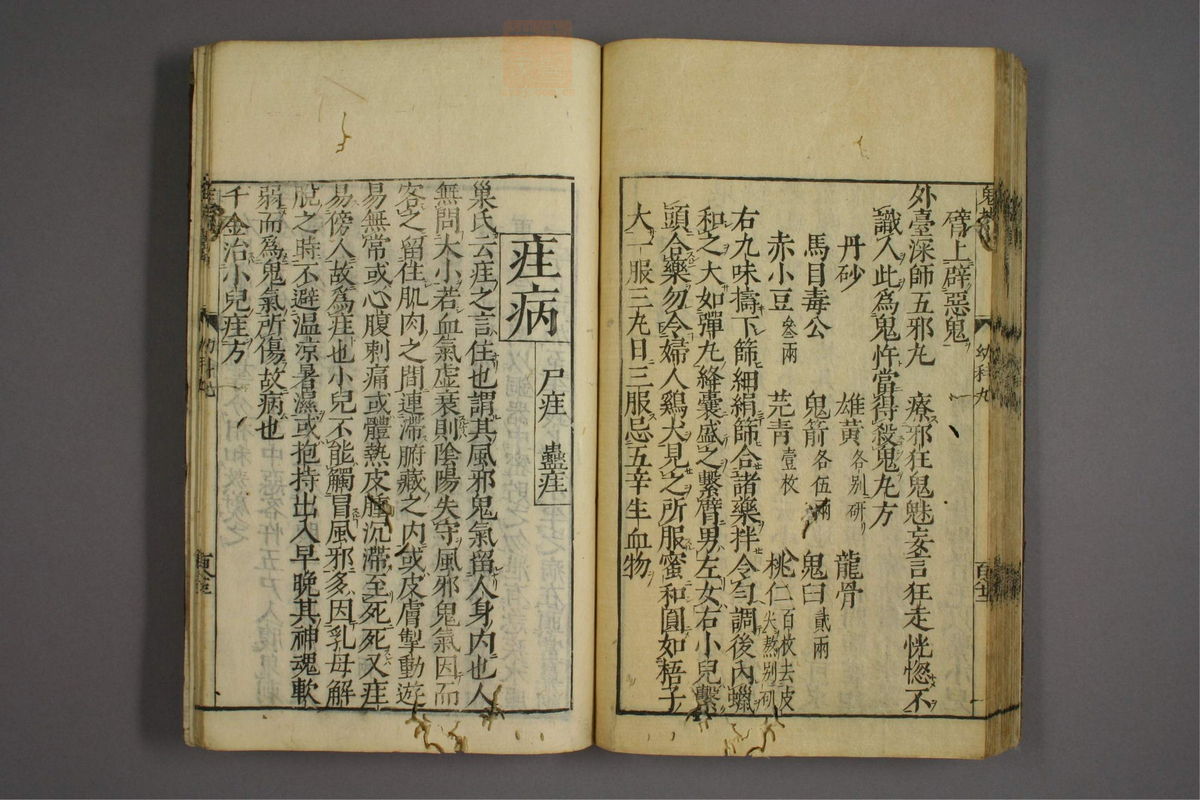 臂上辟惡鬼
外臺深師五邪丸　療邪狂鬼魅妄言狂走恍惚不
識人此為鬼忤當得殺鬼丸方
丹砂　雄黃各別研　龍骨
馬目毒公　鬼箭各伍兩　鬼臼貳兩
赤小豆叄兩　芫青壹枚　桃仁百枚去皮尖熬別研
右九味擣下篩細絹篩合諸藥拌令勻調後內蠟
和之大如彈丸絳囊盛之繫臂男左女右小兒繫
頭合藥勿令婦人鷄犬見之所服蜜和圓如梧子
大一服三丸日三服忌五辛生血物
疰病　尸疰　蠱疰
巢氏云疰之言住也謂其風邪鬼氣留人身內也人
無問大小若血氣虛衰則陰陽失守風邪鬼氣因而
客之留住肌肉之間連滯腑藏之內或皮膚掣動遊
易無常或心腹刺痛或體熱皮腫沉滯至死死又疰
易傍人故為疰也小兒不能觸冒風邪多因乳母解
脫之時不避温凉暑濕或抱持出入早晚其神魂軟
弱而為鬼氣所傷故病也
千金治小兒疰方
幼科九